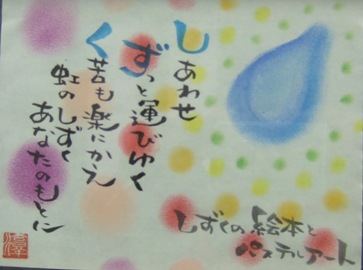 しあわせ
ずっと運びゆく
く苦も楽にかえ
虹のしずく
あなたのもとに
しずくの絵本と
パステルアート